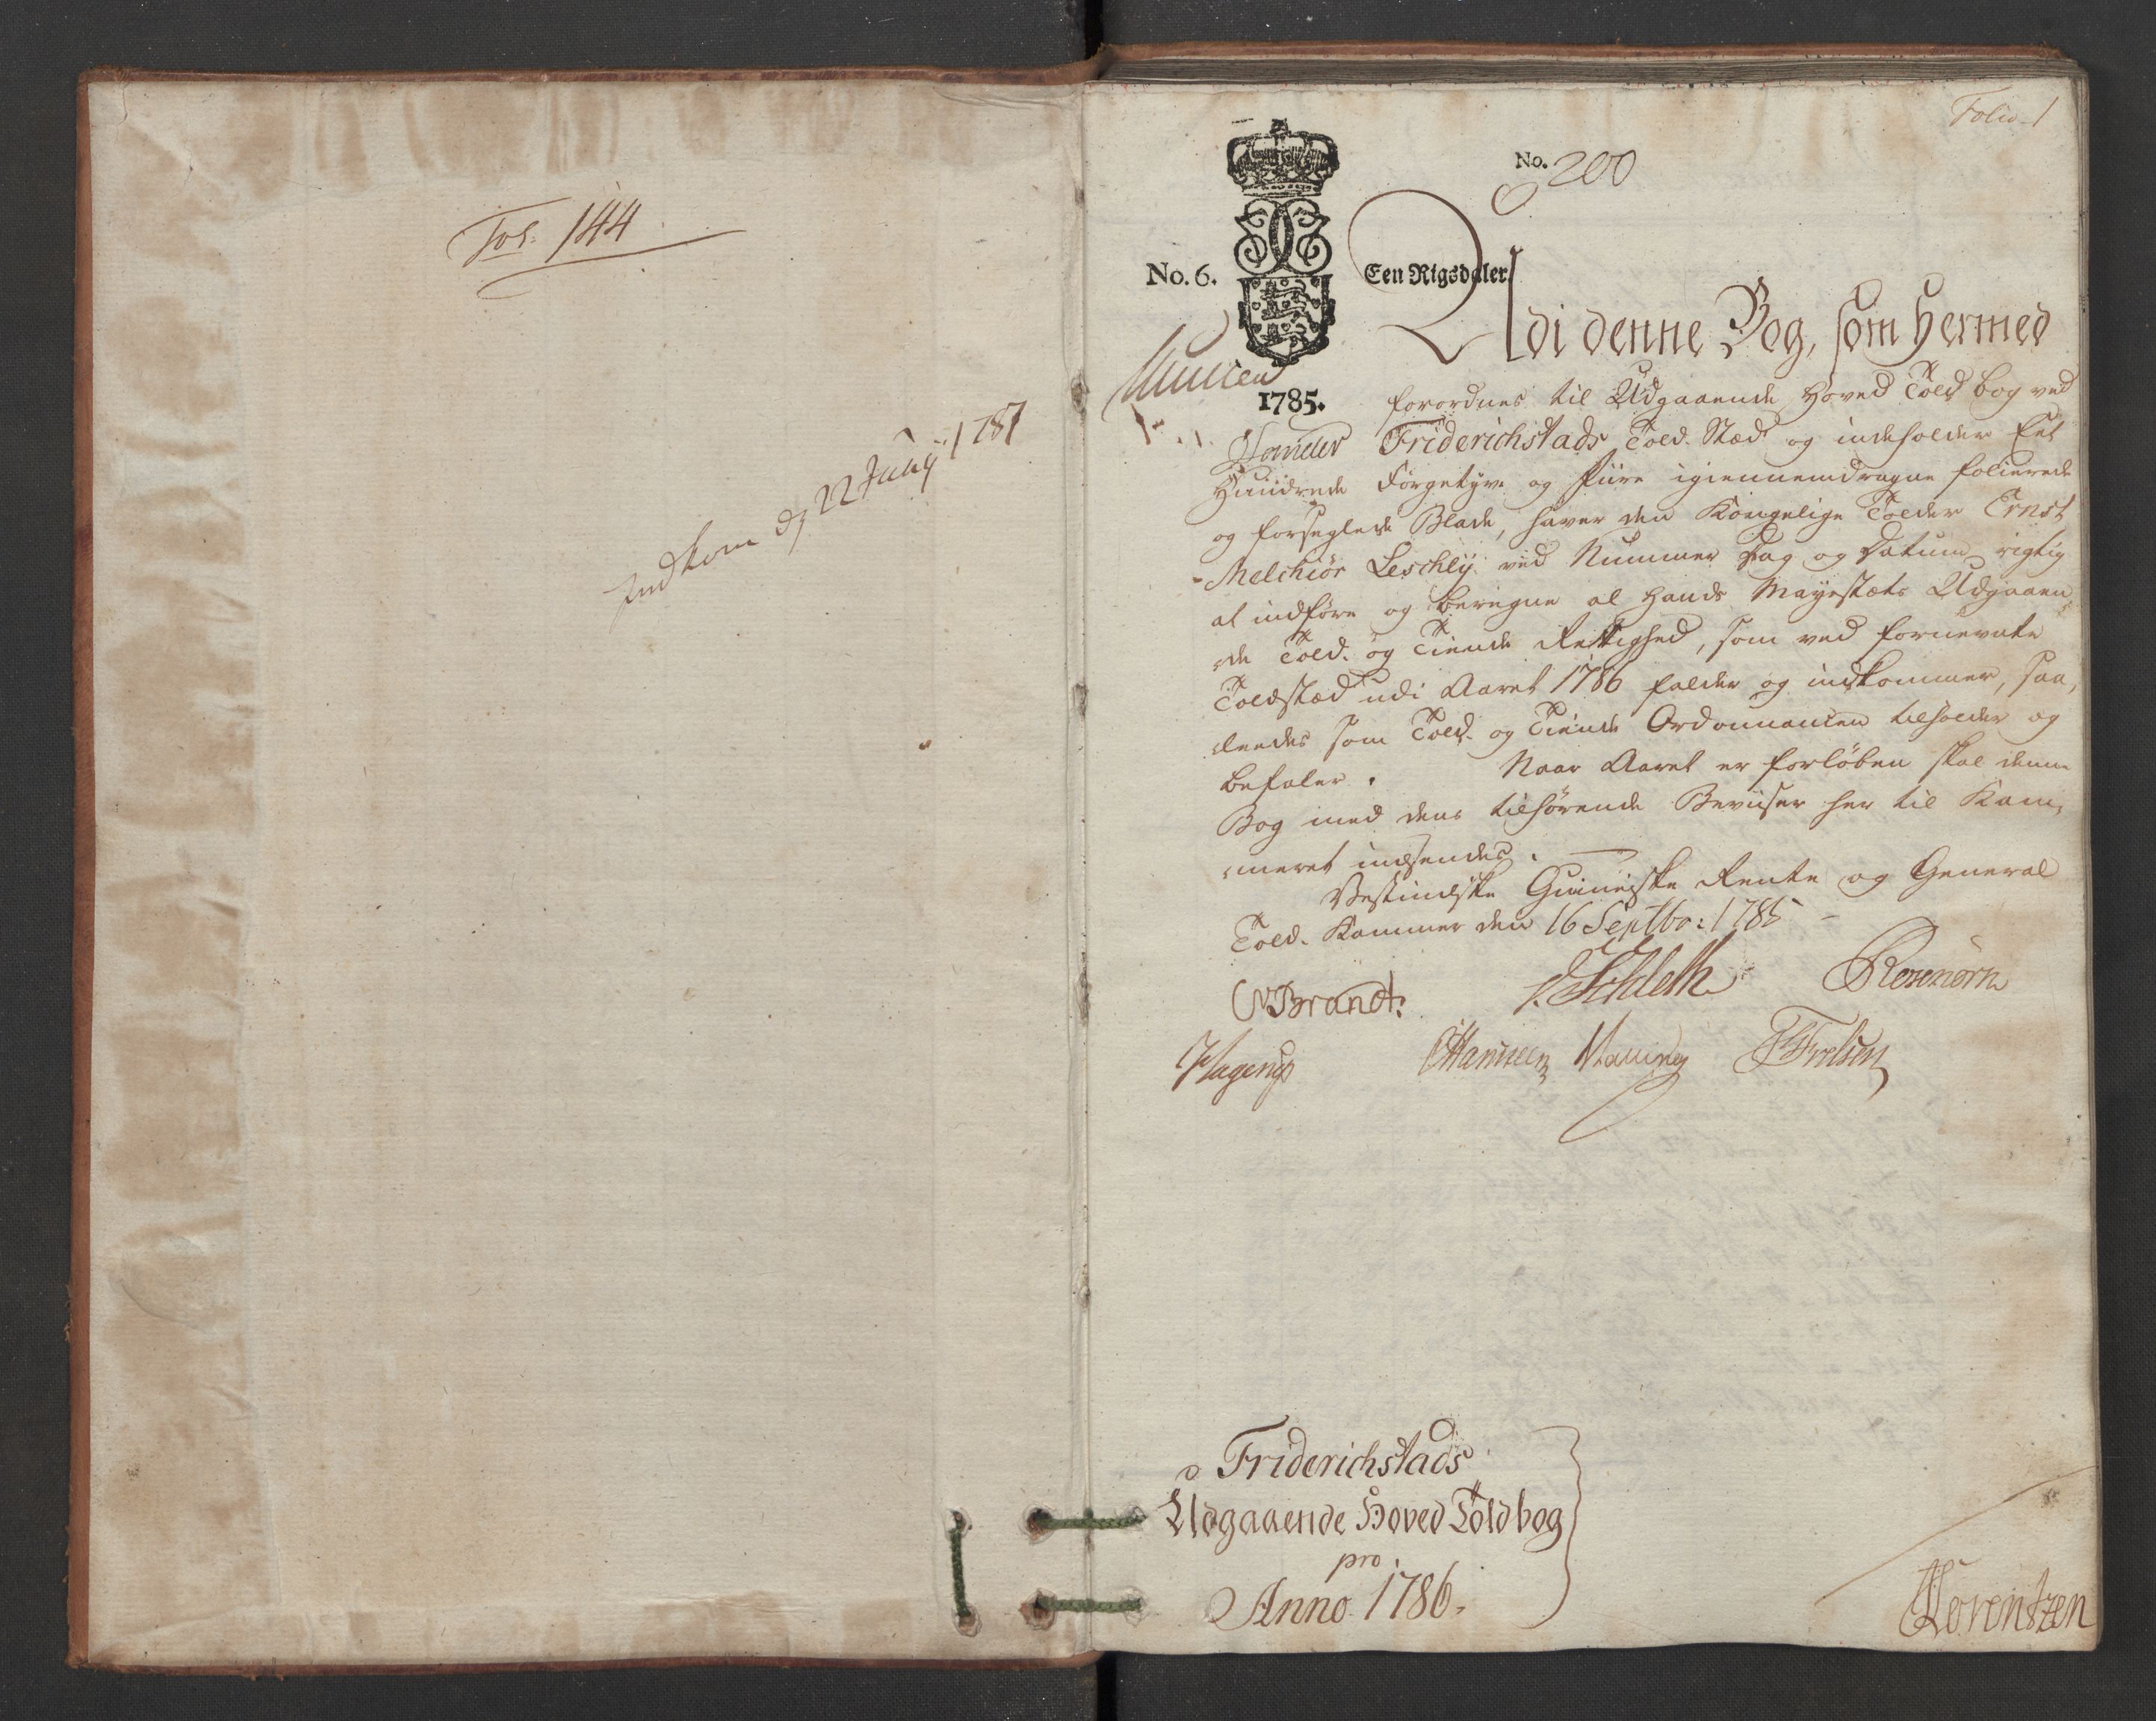 Fol. 144
Indkom d. 22 Junij 1787
Folio 1
No. 200
No. 6.
Een Rigsdaler
1785.
Udi denne Bog, som hermed
forordnes til Udgaaende Hoved Told bog ved
Friderichstads Told-Stæd og indeholder Eet
Hundrede Förgetyve og Fiire igiennemdragne folierede
og forseglede Blade, haver den Kongelige Tolder Ernst
Melchiör Leschly ved Nummer Dag og Datum rigtig
at indføre og beregne al Hands Mayestæts Udgaaen
de Told- og Tiende Rettighed, som ved fornevnte
Toldstæd udi Aaret 1786 falder og indkommer, saa,
ledes som Told- og Tiende Ordonnancen tilholder og
befaler. Naar Aaret er forløben skal denne
Bog med dens tilhørende Beviiser her til Kam,
meret indsendes.
Vestindiske Guineiske Rente og General
Told-Kammer den 16 Septbr: 1785
Brandt. Rosenørn
Hagerup Hansen
Friderichstads
Udgaaende Hoved Toldbog
pro
Anno 1786.
Lorentzen